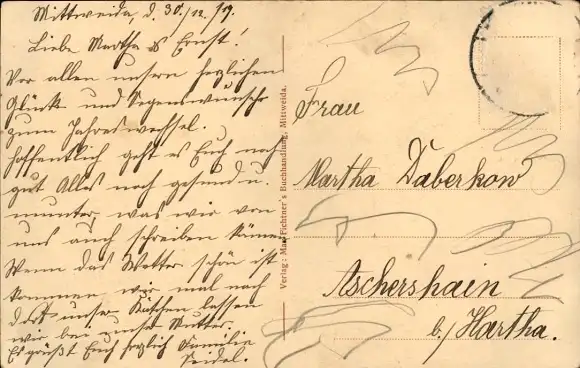 Mittweida, d. 30./12.19.
Liebe Martha & Ernst!
Vor allen unsern herzlichen
Glück- und Segenswünsche
zum Jahreswechsel.
Hoffentlich geht es Euch noch
gut Alles noch gesund u.
munter, was wir von
uns auch schreiben können.
Wenn das Wetter schön ist
kommen wir mal nach
dort unser lassen
wir bei Mutter.
Es grüßt Euch herzlich Familie
Seidel.
Verlag: Max Fichtner's Buchhandlung, Mittweida.
Frau
Martha Daberkow
Aschershain
b./ Hartha.